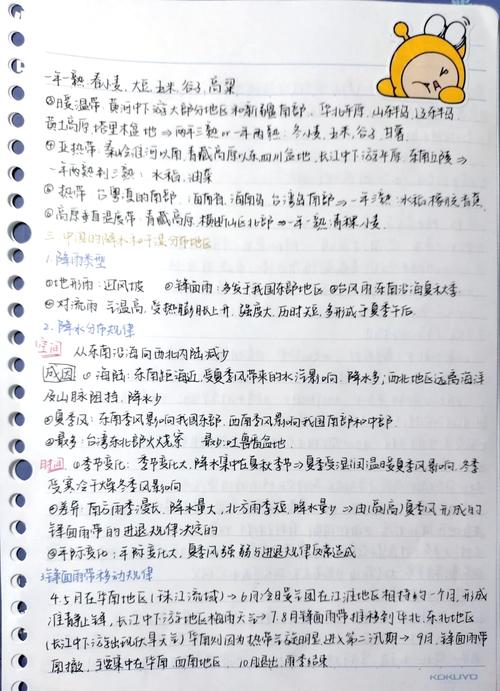 一年一熟 春小麦、大豆、玉米、谷子、高粱
③暖温带 黄河中下游大部分地区和新疆南部、华北平原、山东半岛、辽东半岛
黄土高原、塔里木盆地 ⇒ 两年三熟 or 一年两熟: 冬小麦、玉米、谷子、甘薯
④亚热带 秦岭淮河以南、青藏高原以东四川盆地、长江中下游平原、东南丘陵 ⇒
一年两熟到三熟: 水稻、油菜
⑤热带 滇的南部、海南省、台湾岛南部 ⇒ 一年三熟: 水稻、橡胶、香蕉
⑥高原垂直温度带 青藏高原、横断山区北部 ⇒ 一年一熟: 青稞、小麦
三 中国的降水和干湿分布地区
1.降雨类型
①地形雨: 迎风坡 ②锋面雨: 多发于我国东部地区 ③台风雨: 东南沿海夏秋季
④对流雨 气温高、受热膨胀上升、强度大、历时短、多形成于夏季午后
2.降水分布规律
空间 从东南沿海向西北内陆减少
成因 ①海陆: 东南距海近,受夏季风带来的水汽影响,降水多; 西北地区远离海洋
及山脉阻挡,降水少
②夏季风: 东南季风影响我国东部、西南季风影响我国南部和中部
③最多: 台湾东北部火烧寮 最少: 吐鲁番盆地
时间 ①季节变化: 季节变化大,降水集中在夏秋季节 ⇒ 夏季受湿润温暖夏季风影响,冬季
受寒冷干燥冬季风影响
②差异: 南方雨季漫长,降水量大,北方雨季短,降水量少 ⇒ 由夏季风形成的
锋面雨带的进退规律决定的
③年际变化: 年际变化大,夏季风强弱与进退规律反常造成
3.锋面雨带移动规律
4.5月在华南地区(珠江流域) → 6月冷暖气团在江淮地区相持约一个月,形成
准静止锋,长江中下游地区梅雨天气 → 7.8月锋面雨带推移到华北、东北地区
(长江中下游出现伏旱天气) 华南则因为热带气旋明显进入第二汛期 → 9月,锋面雨带
南撤,主要集中在华南、西南地区,10月退出,雨季结束
KOKUYO